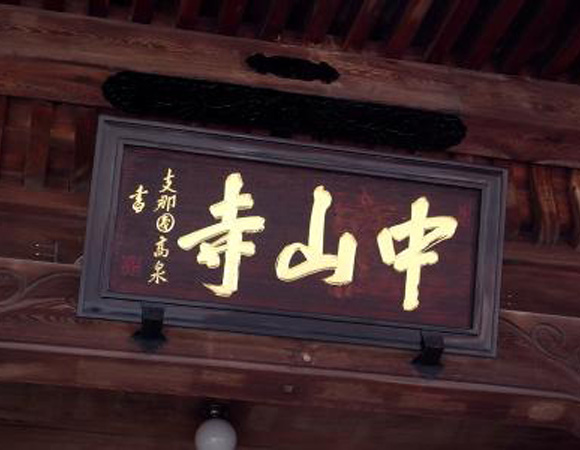 中山寺
支那國高泉
書